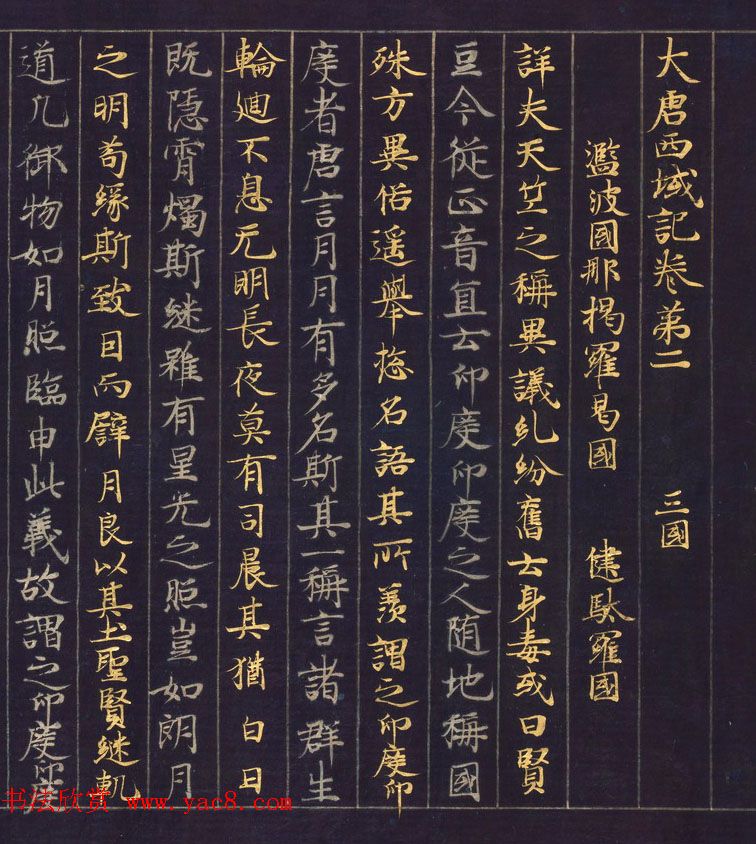 大唐西域記卷第二 三國
濫波國 那揭羅曷國 健馱羅國
詳夫天竺之稱異議糺紛舊云身毒或曰賢
豆今從正音宜云印度印度之人隨地稱國
殊方異俗遥舉惣名語其所羨謂之印度印
度者唐言月月有多名斯其一稱言諸群生
輪迴不息无明長夜莫有司晨其猶白日
既隱宵燭斯継雖有星光之照豈如朗月
之明苟緣斯致因而譬月良以其土聖賢継軌
道凡御物如月照臨由此義故謂之印度印度
书法欣赏 www.yac8.com